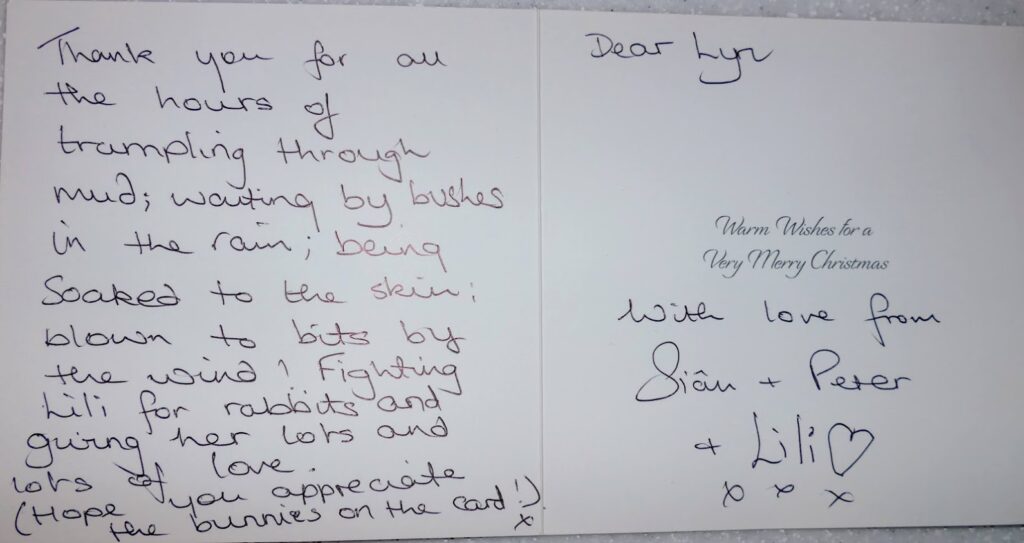 Thank you for all
the hours of
trampling through
mud; waiting by bushes
in the rain; being
Soaked to the skin;
blown to bits by
the wind! Fighting
Lili for rabbits and
giving her lots and
lots of love.
(Hope you appreciate
the bunnies on the card!)
x
Dear Lyn
Warm Wishes for a
Very Merry Christmas
With love from
Siân + Peter
+ Lili ♡
x x x